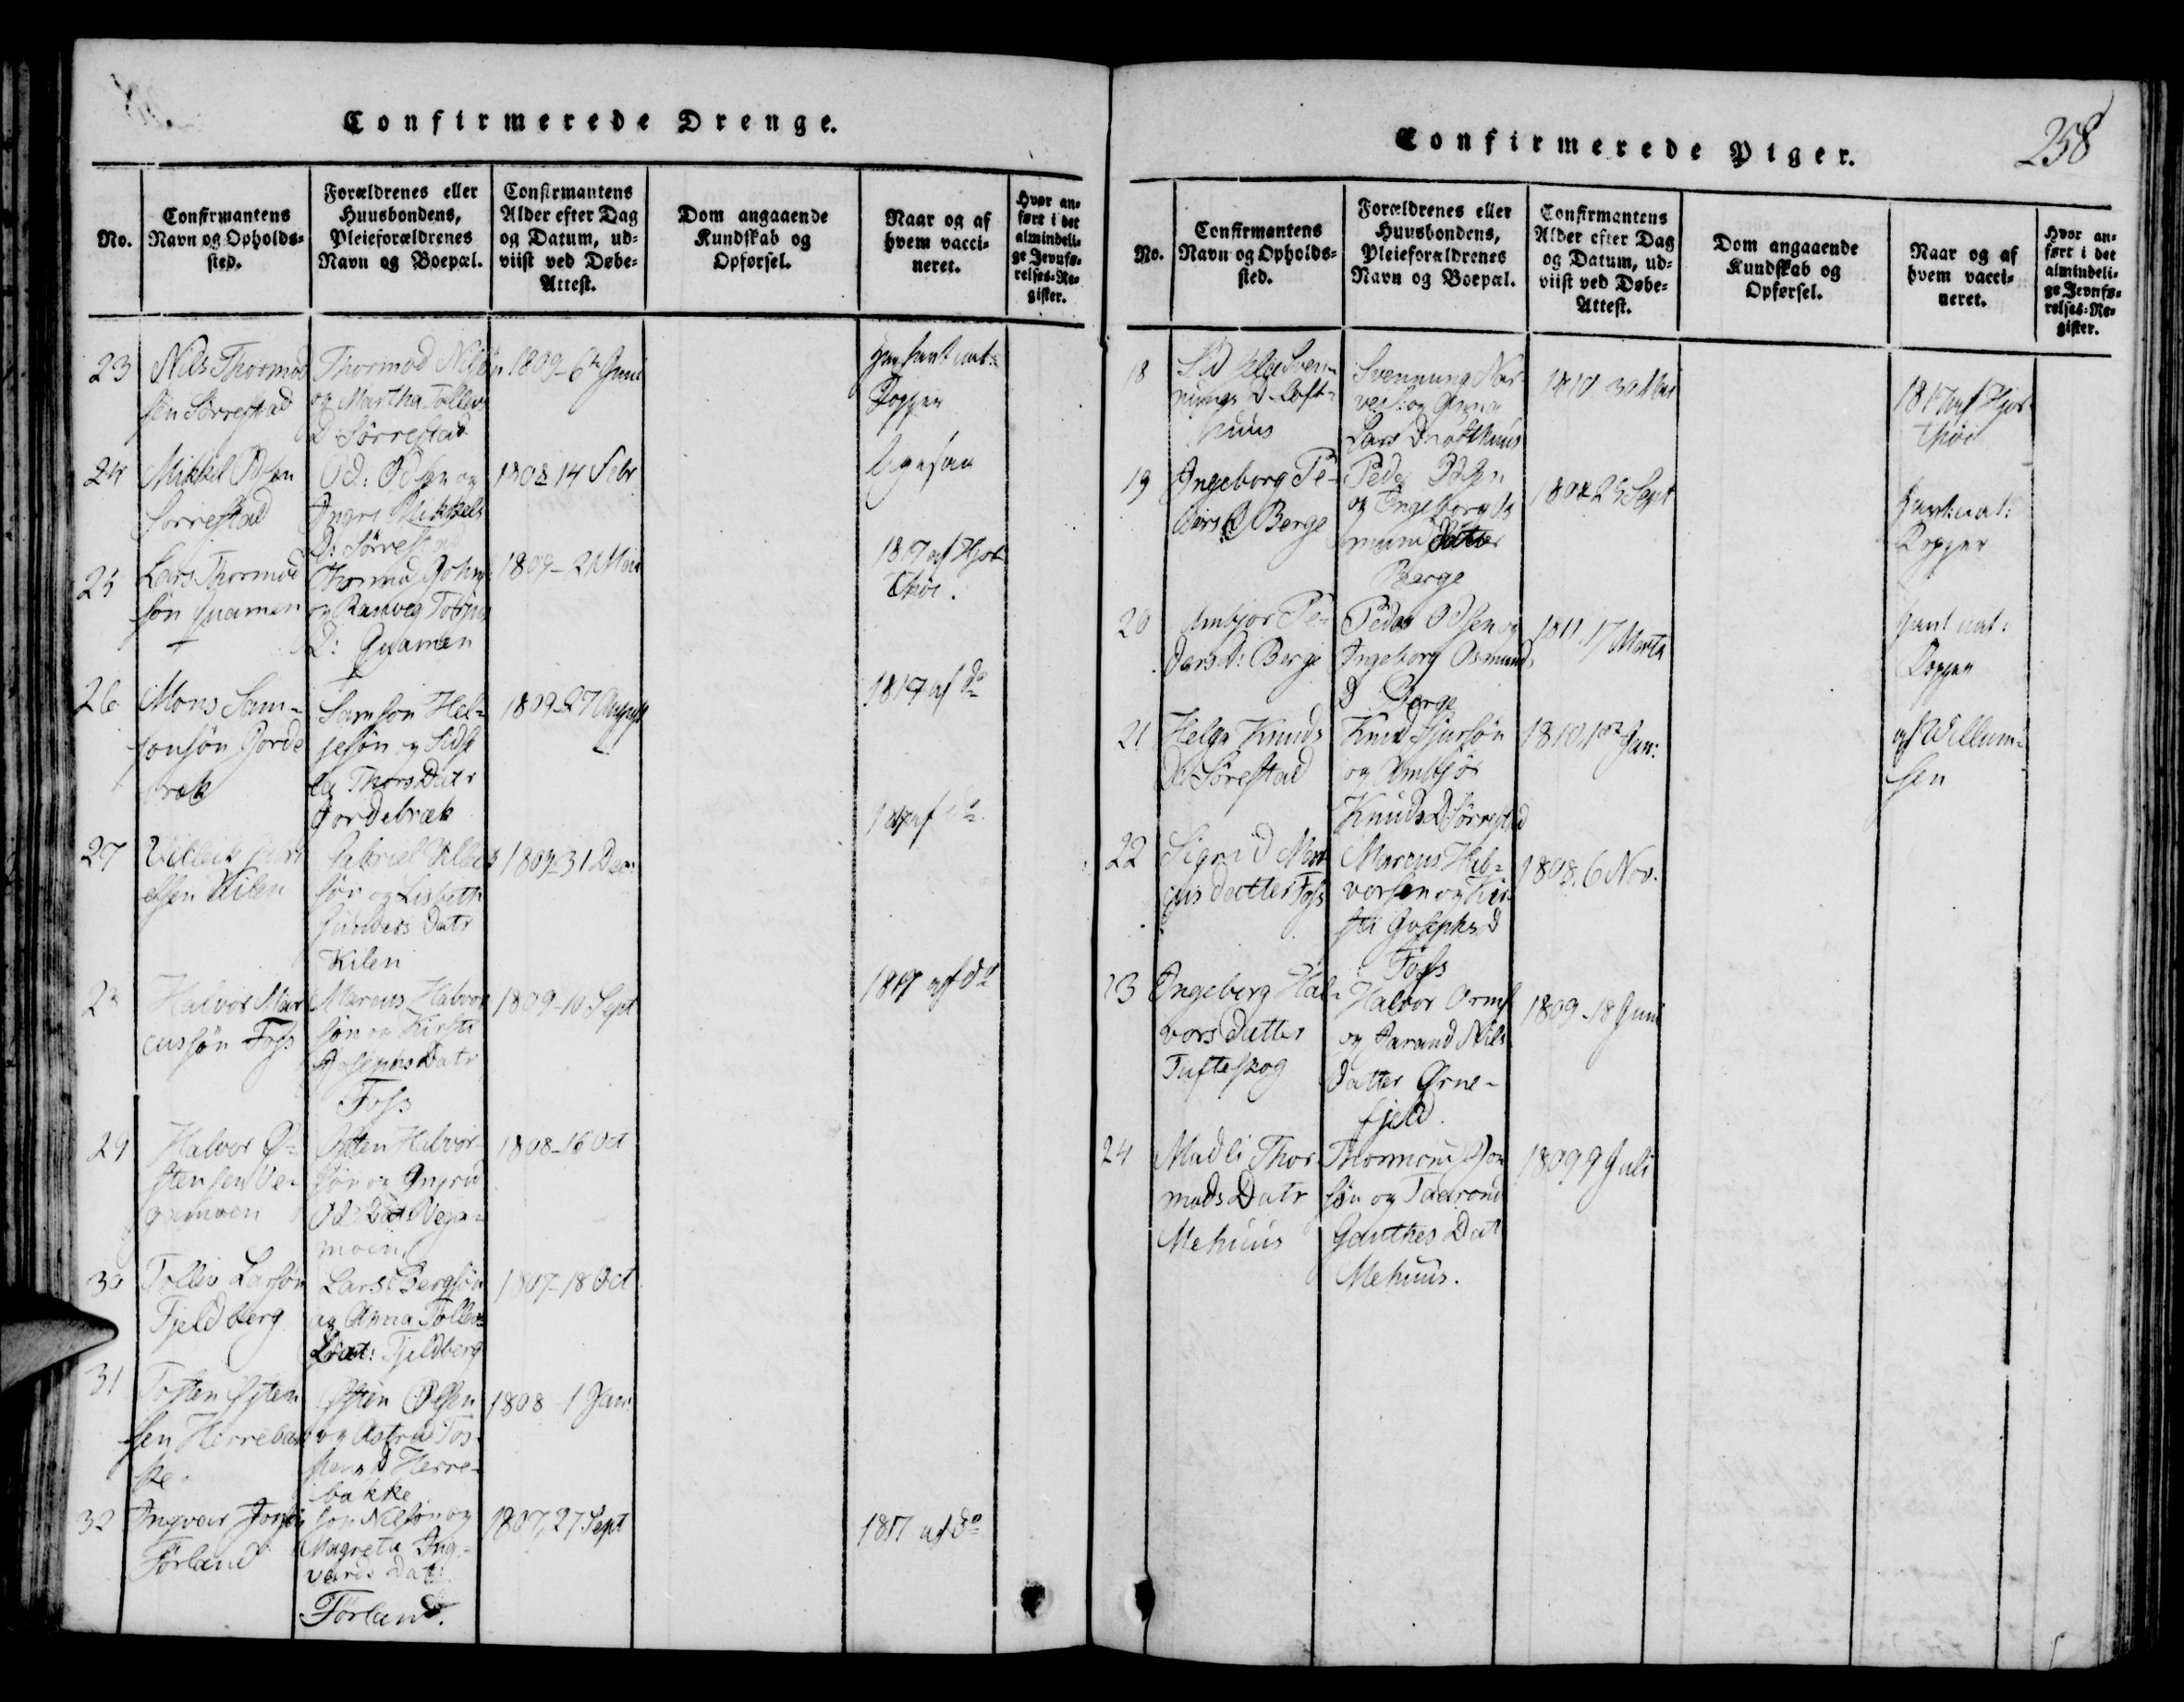 Confirmerede Drenge.
No.
Confirmantens
Navn og Opholds-
sted.
Forældrenes eller
Huusbondens,
Pleieforældrenes
Navn og Boepæl.
Confirmantens
Alder efter Dag
og Datum, ud-
viist ved Døbe-
Attest.
Dom angaaende
Kundskab og
Opførsel.
Naar og af
hvem vacci-
neret.
Hvor an-
ført i det
almindeli-
ge Jevnfø-
relses-Re-
gister.
23
Nils Thormod
sen Sørrestad
Thormod Nilsøn
og Martha Tollevs
D: Sørrestad
1809-6te Juni
har havt nat:
Kopper
24
Mikkel Odsen
Sørrestad
Od: Odsen og
Ingri Mikkels
D: Sørrestad
1808 14 Febr
ligesaa
25
Lars Thormod
søn Qvamen
Thormod Johns
og Ranveg Tobias
D: Qvamen
1809-21 Mai
1817 af Hjor
thøi.
26
Mons Sam-
sonsøn Gorde
bræk
Samson Hel-
jesøn og Sidse
le Thors Datr
Gordebræk
1809-27 August
1817 af do
27
Gabri
elsen Kilen
Gabriel Villiks
søn og Lisbeth
Gunders Datr
Kilen
1809-31 Dec:
1817 af do
28
Halvor Mar
cussøn Foss
Marcus Halvor
søn og Kirsti
Josephs Datr
Foss
1809-10 Sept
1817 af do
29
Halvor Ø-
stensen Ve-
gamoen
Østen Halvor
søn og Ingri
Ods Dat Vega-
moen
1808-16 Oct
30
Tollev Larsøn
Fjeldberg
Lars Bergsøn
og Anna Tollevs
Dat: Fjeldberg
1807-18 Oct
31
Tosten Østen
sen Herrebak
ke.
Østen Olsen
og Astrid Tos
stens D Herre-
bakke
1808-1 Jan:
32
Ingvar Jonsøn
Førland
Jon Nilsøn og
Magreta Ing-
vards Dat:
Førland.
1807, 27 Sept
1817 af do
Confirmerede Piger.
258
No.
Confirmantens
Navn og Opholds-
sted.
Forældrenes eller
Huusbondens,
Pleieforældrenes
Navn og Boepæl.
Confirmantens
Alder efter Dag
og Datum, ud-
viist ved Døbe-
Attest.
Dom angaaende
Kundskab og
Opførsel.
Naar og af
hvem vacci-
neret.
Hvor an-
ført i det
almindeli-
ge Jevnfø-
relses-Re-
gister.
18
Sven-
nungs D Loft-
huus
Svennung Nar
ves: og Anna
Lars D Lofthuus
30 Mai
1817 af Hjor-
thøi
19
Ingeborg Pe-
ders D Berge
Peder Odsen
og Ingeborg Os
mund Datter
Berge
1808 25 Sept
havt nat:
Kopper
20
Ambjor Pe-
ders D: Berge
Peder Odsen og
Ingeborg Osmunds
D Berge
1811, 17 Marts
havt nat:
Kopper
21
Helga Knuds
D: Sørestad
Knud Sjursøn
og Ambjør
Knuds D Sørrestad
1810, 1ste Jan:
af Willum-
sen
22
Sigrid Mar
cus datter Foss
Marcus Hal-
vorsen og Kir
sti Josephs D
Foss
1808. 6 Nov.
23
Ingeborg Hal-
vors datter
Tufteskog
Halvor Orms
og Jarand Nils
datter Ørne-
fjeld.
1809-18 Juni
24
Madli Thor
mods Datr
Mehuus
Thormod Jon
søn og Taarond
Gauthes Dat
Mehuus.
1809 9 Juli